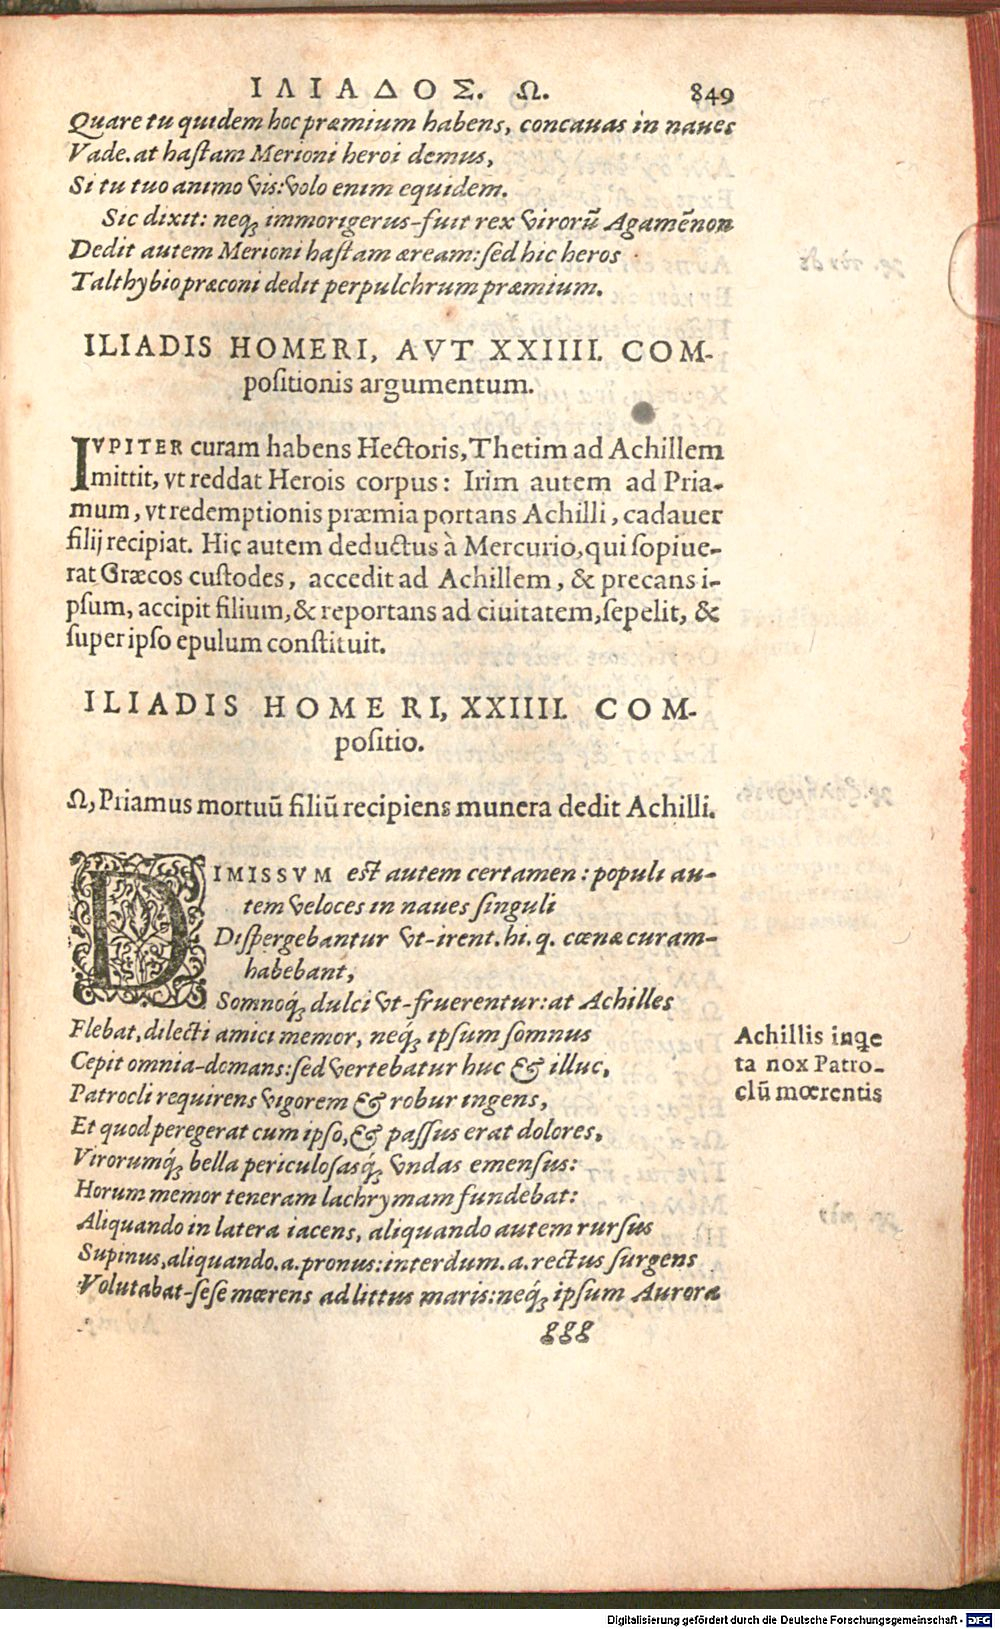 ΙΛΙΑΔΟΣ. Ω. 849
Quare tu quidem hoc præmium habens, concauas in naues
Vade. at hastam Merioni heroi demus,
Si tu tuo animo vis: volo enim equidem.
Sic dixit: neq; immorigerus-fuit rex virorũ Agamẽnon
Dedit autem Merioni hastam æream: sed hic heros
Talthybio præconi dedit perpulchrum præmium.
ILIADIS HOMERI, AVT XXIIII. COM-
positionis argumentum.
IVPITER curam habens Hectoris, Thetim ad Achillem
mittit, vt reddat Herois corpus: Irim autem ad Pria-
mum, vt redemptionis præmia portans Achilli, cadauer
filij recipiat. Hic autem deductus à Mercurio, qui sopiue-
rat Græcos custodes, accedit ad Achillem, & precans i-
psum, accipit filium, & reportans ad ciuitatem, sepelit, &
super ipso epulum constituit.
ILIADIS HOMERI, XXIIII. COM-
positio.
Ω, Priamus mortuũ filiũ recipiens munera dedit Achilli.
DIMISSVM est autem certamen: populi au-
tem veloces in naues singuli
Dispergebantur vt-irent. hi. q. cœnæ curam-
habebant,
Somnoq́; dulci vt-fruerentur: at Achilles
Flebat, dilecti amici memor, neq́; ipsum somnus
Cepit omnia-domans: sed vertebatur huc & illuc,
Patrocli requirens vigorem & robur ingens,
Et quod peregerat cum ipso, & passus erat dolores,
Virorumq́; bella periculosasq́; vndas emensus:
Horum memor teneram lachrymam fundebat:
Aliquando in latera iacens, aliquando autem rursus
Supinus, aliquando. a. pronus: interdum. a. rectus surgens
Volutabat-sese mœrens ad littus maris: neq́; ipsum Aurora
ggg
Achillis inqe
ta nox Patro-
clũ mœrentis
Digitalisierung gefördert durch die Deutsche Forschungsgemeinschaft - DFG